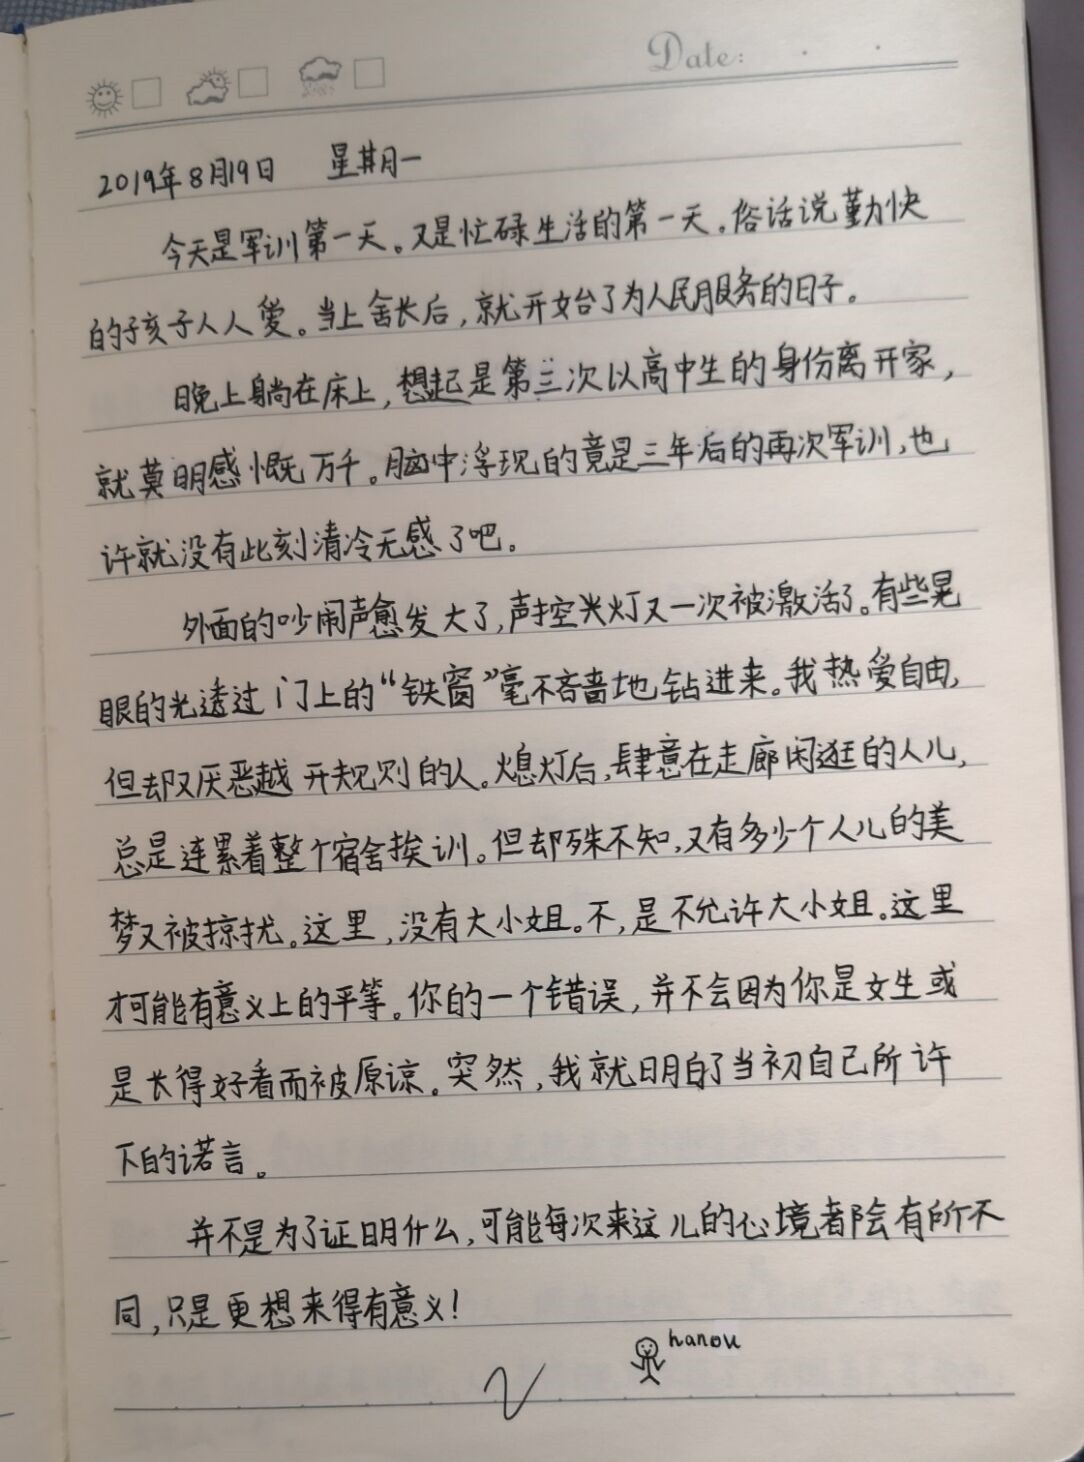 Date:
2019年8月19日 星期一
今天是军训第一天。又是忙碌生活的第一天。俗话说勤快
的孩子人人爱。当上舍长后,就开始了为人民服务的日子。
晚上躺在床上,想起是第三次以高中生的身份离开家,
就莫明感慨万千。脑中浮现的竟是三年后的再次军训,也
许就没有此刻清冷无感了吧。
外面的吵闹声愈发大了,声控光灯又一次被激活了。有些晃
眼的光透过门上的“铁窗”毫不吝啬地钻进来。我热爱自由,
但却又厌恶越开规则的人。熄灯后,肆意在走廊闲逛的人儿,
总是连累着整个宿舍挨训。但却殊不知,又有多少个人儿的美
梦又被掠扰。这里,没有大小姐。不,是不允许大小姐。这里
才可能有意义上的平等。你的一个错误,并不会因为你是女生或
是长得好看而被原谅。突然,我就明白了当初自己所许
下的诺言。
并不是为了证明什么,可能每次来这儿的心境都会有所不
同,只是更想来得有意义!
hanou